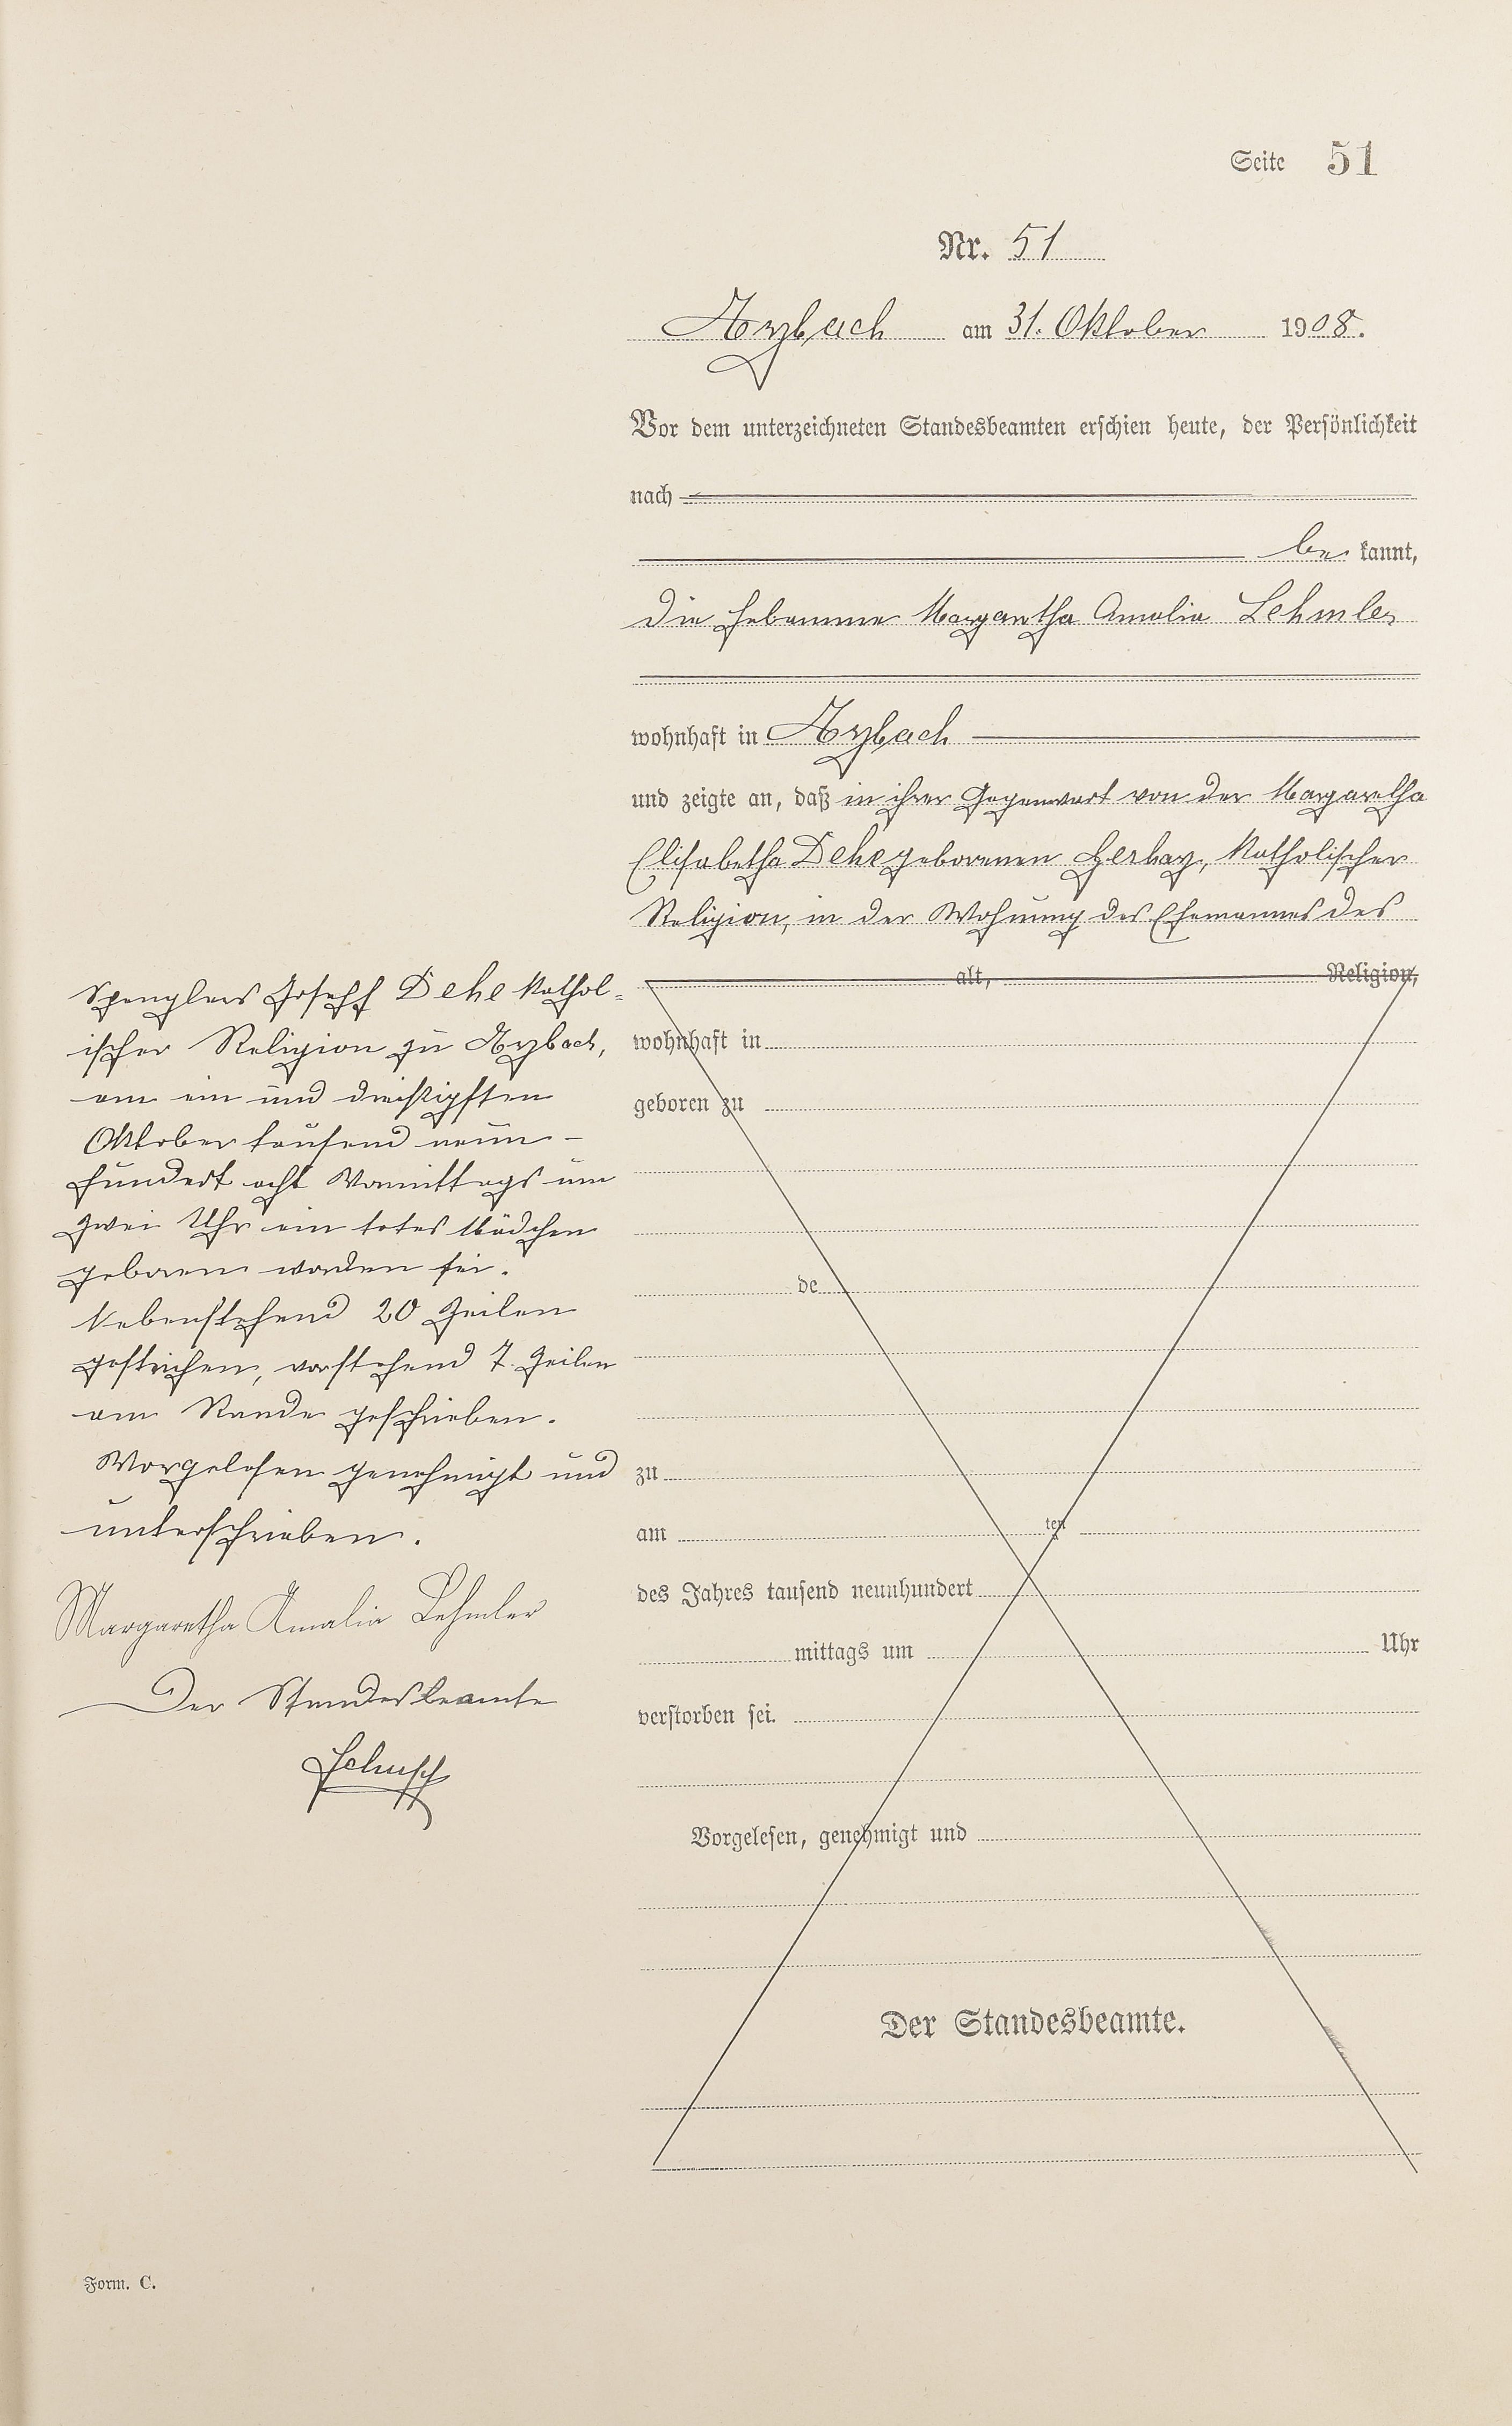 Seite 51
Nr. 51
Arzbach am 31. Oktober 1908.
Vor dem unterzeichneten Standesbeamten erschien heute, der Persönlichkeit
nach
be kannt,
die Hebamme Margaretha Amalia Lehmler
wohnhaft in Arzbach
und zeigte an, daß in ihrer Gegenwart von der Margaretha
Elisabetha Dehe geborenen Herbay, katholischer
Religion, in der Wohnung des Ehemannes des
Spenglers Joseph Dehe kathol=
ischer Religion zu Arzbach,
am ein und dreißigsten
Oktober tausend neun-
hundert acht Vormittags um
zwei Uhr ein totes Mädchen
geboren worden sei.
Nebenstehend 20 Zeilen
gestrichen, vorstehend 7 Zeilen
am Rande geschrieben.
Vorgelesen genehmigt und
unterschrieben.
Margaretha Amalia Lehmler
Der Standesbeamte
alt, Religion,
wohnhaft in
geboren zu
de
zu
am ten
des Jahres tausend neunhundert
mittags um Uhr
verstorben sei.
Vorgelesen, genehmigt und
Der Standesbeamte.
Form. C.